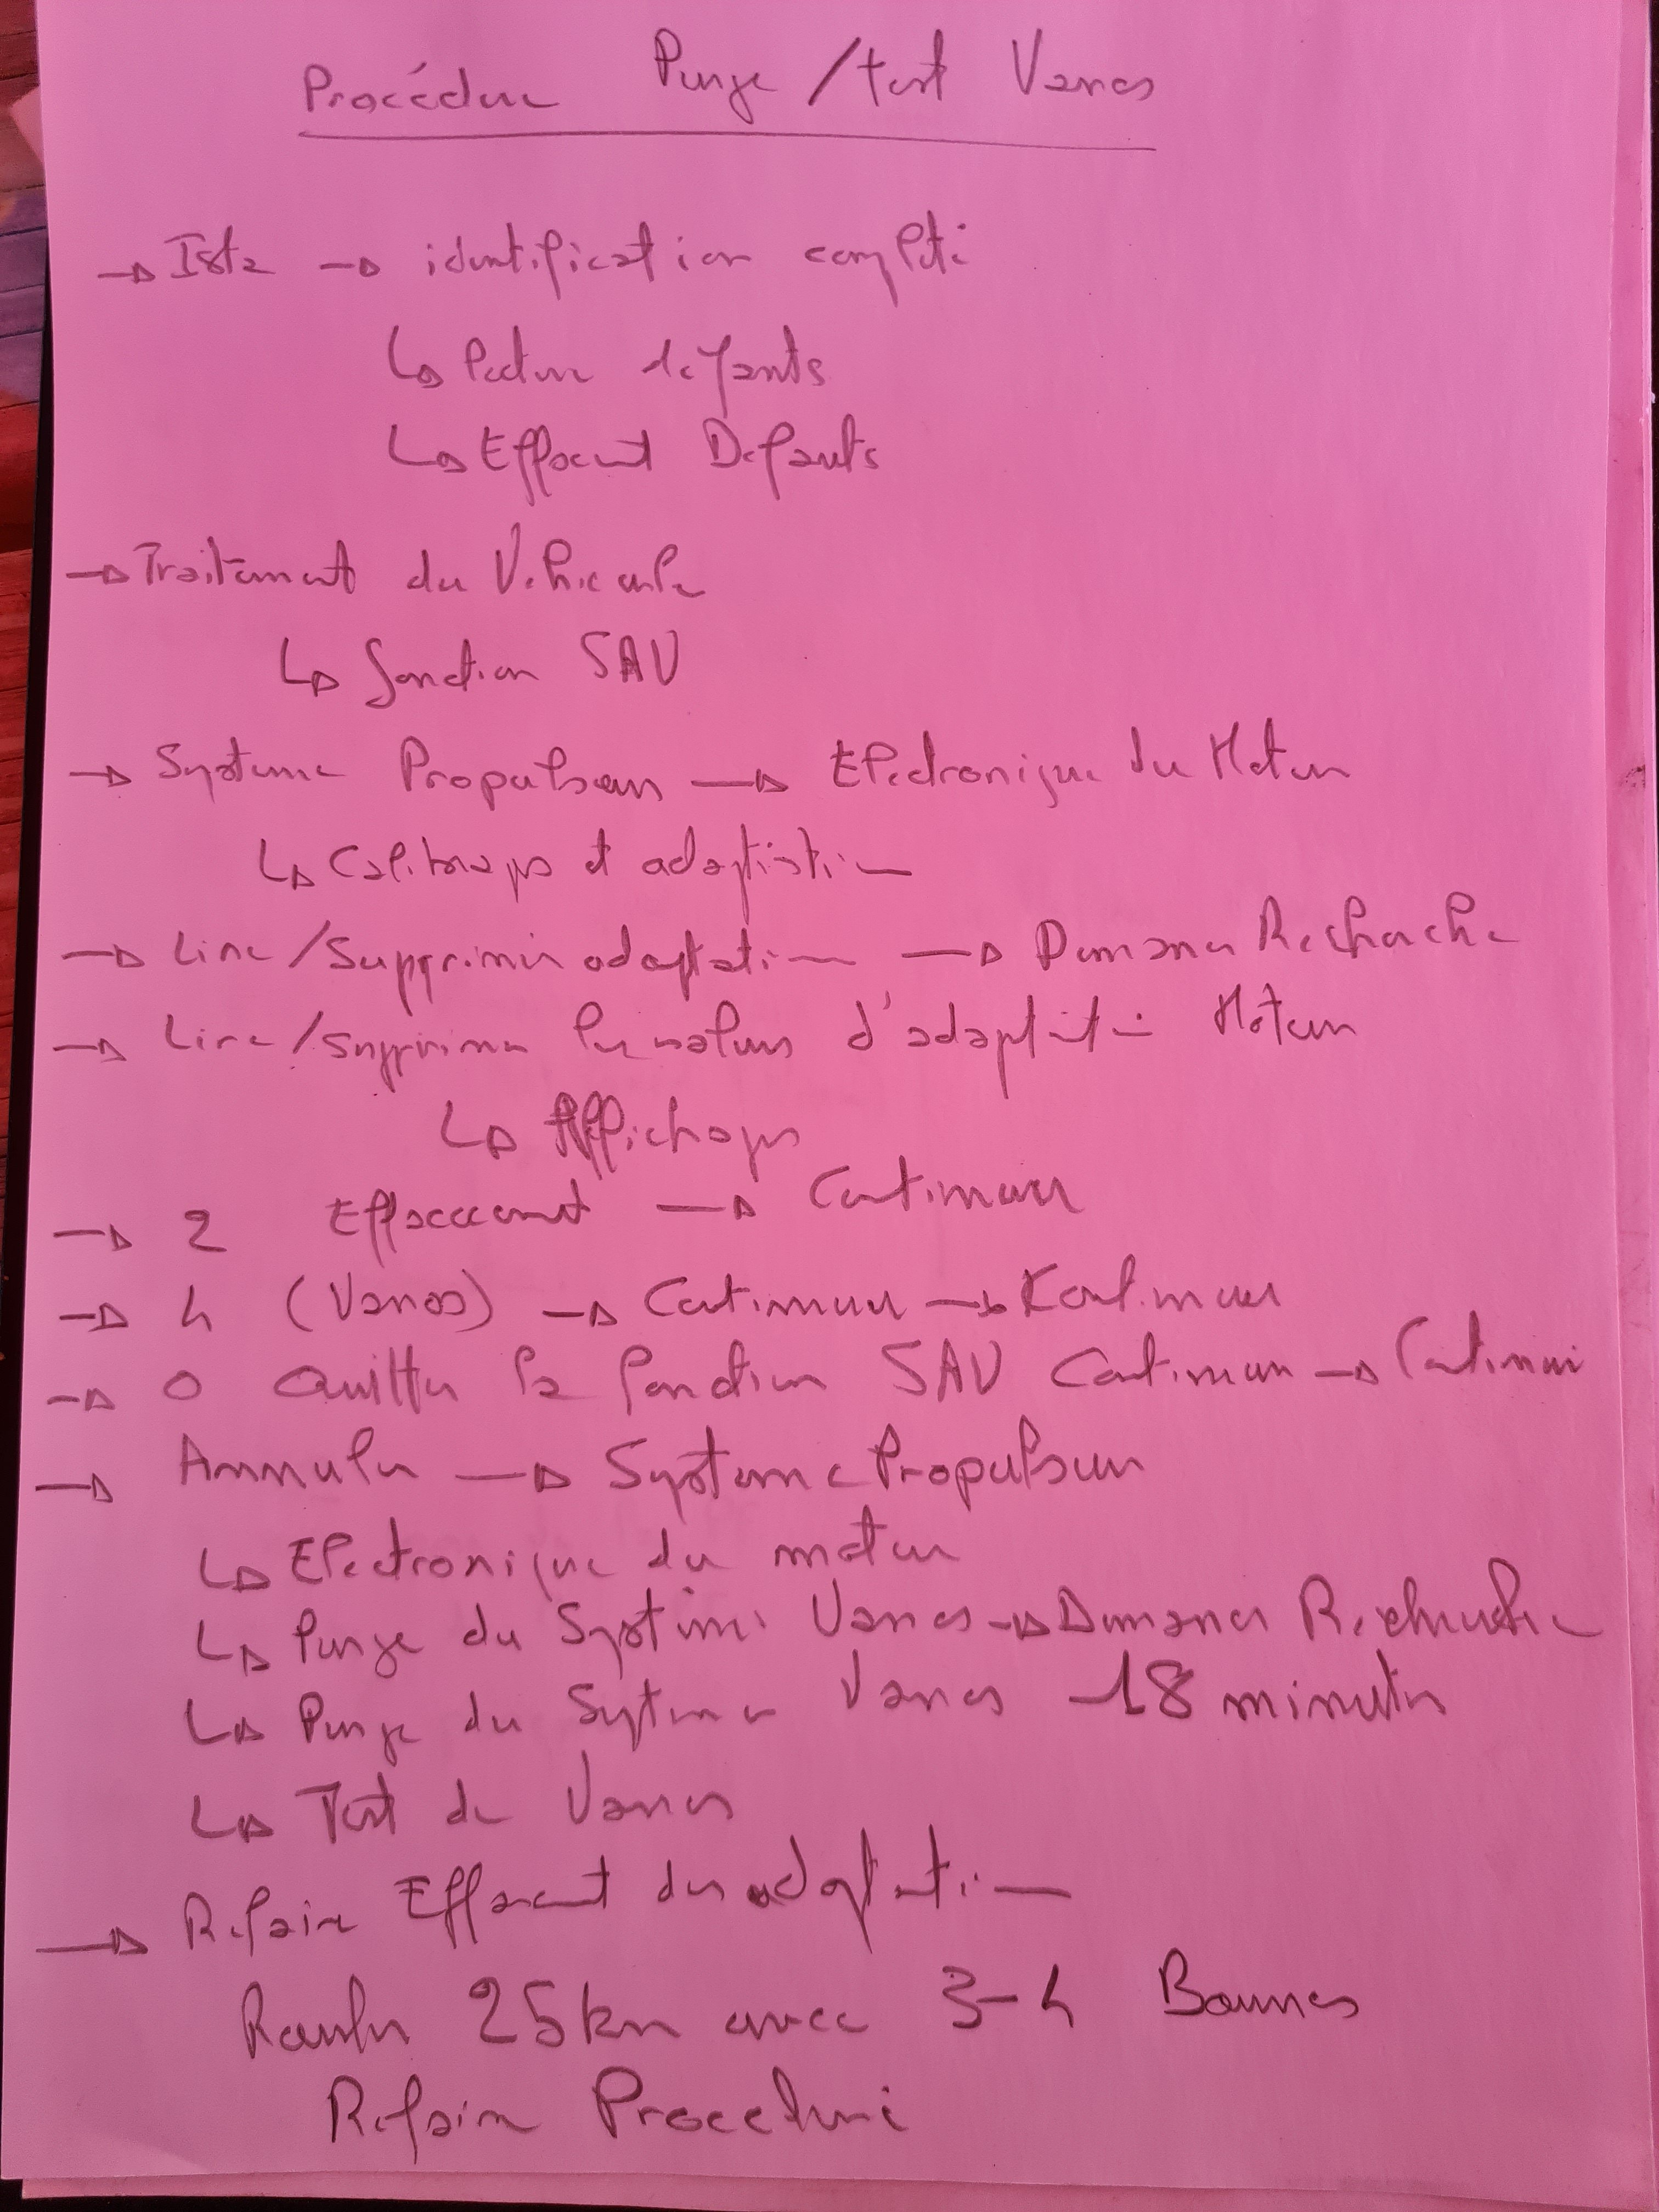 Procédure Purge / test Vanos
→ Ista → identification complète
↳ lecture défauts
↳ Effacement Defauts
→ Traitement du Véhicule
↳ fonction SAV
→ Système Propulseur → Electronique du Moteur
↳ Calibrages et adaptation
→ Lire / Supprimer adaptation → Demarrer Recherche
→ Lire / supprimer les valeurs d'adaptation Moteur
↳ Affichages
→ 2 Effacement → Continuer
→ 4 (Vanos) → Continuer → Continuer
→ 0 Quitter la fonction SAV Continuer → Continuer
→ Annuler → Système Propulseur
↳ Electronique du moteur
↳ Purge du Système Vanos → Demarrer Recherche
↳ Purge du Système Vanos 18 minutes
↳ Test de Vanos
→ Refaire Effacement des adaptation
Rouler 25 km avec 3-4 Bourres
Refaire Procedure